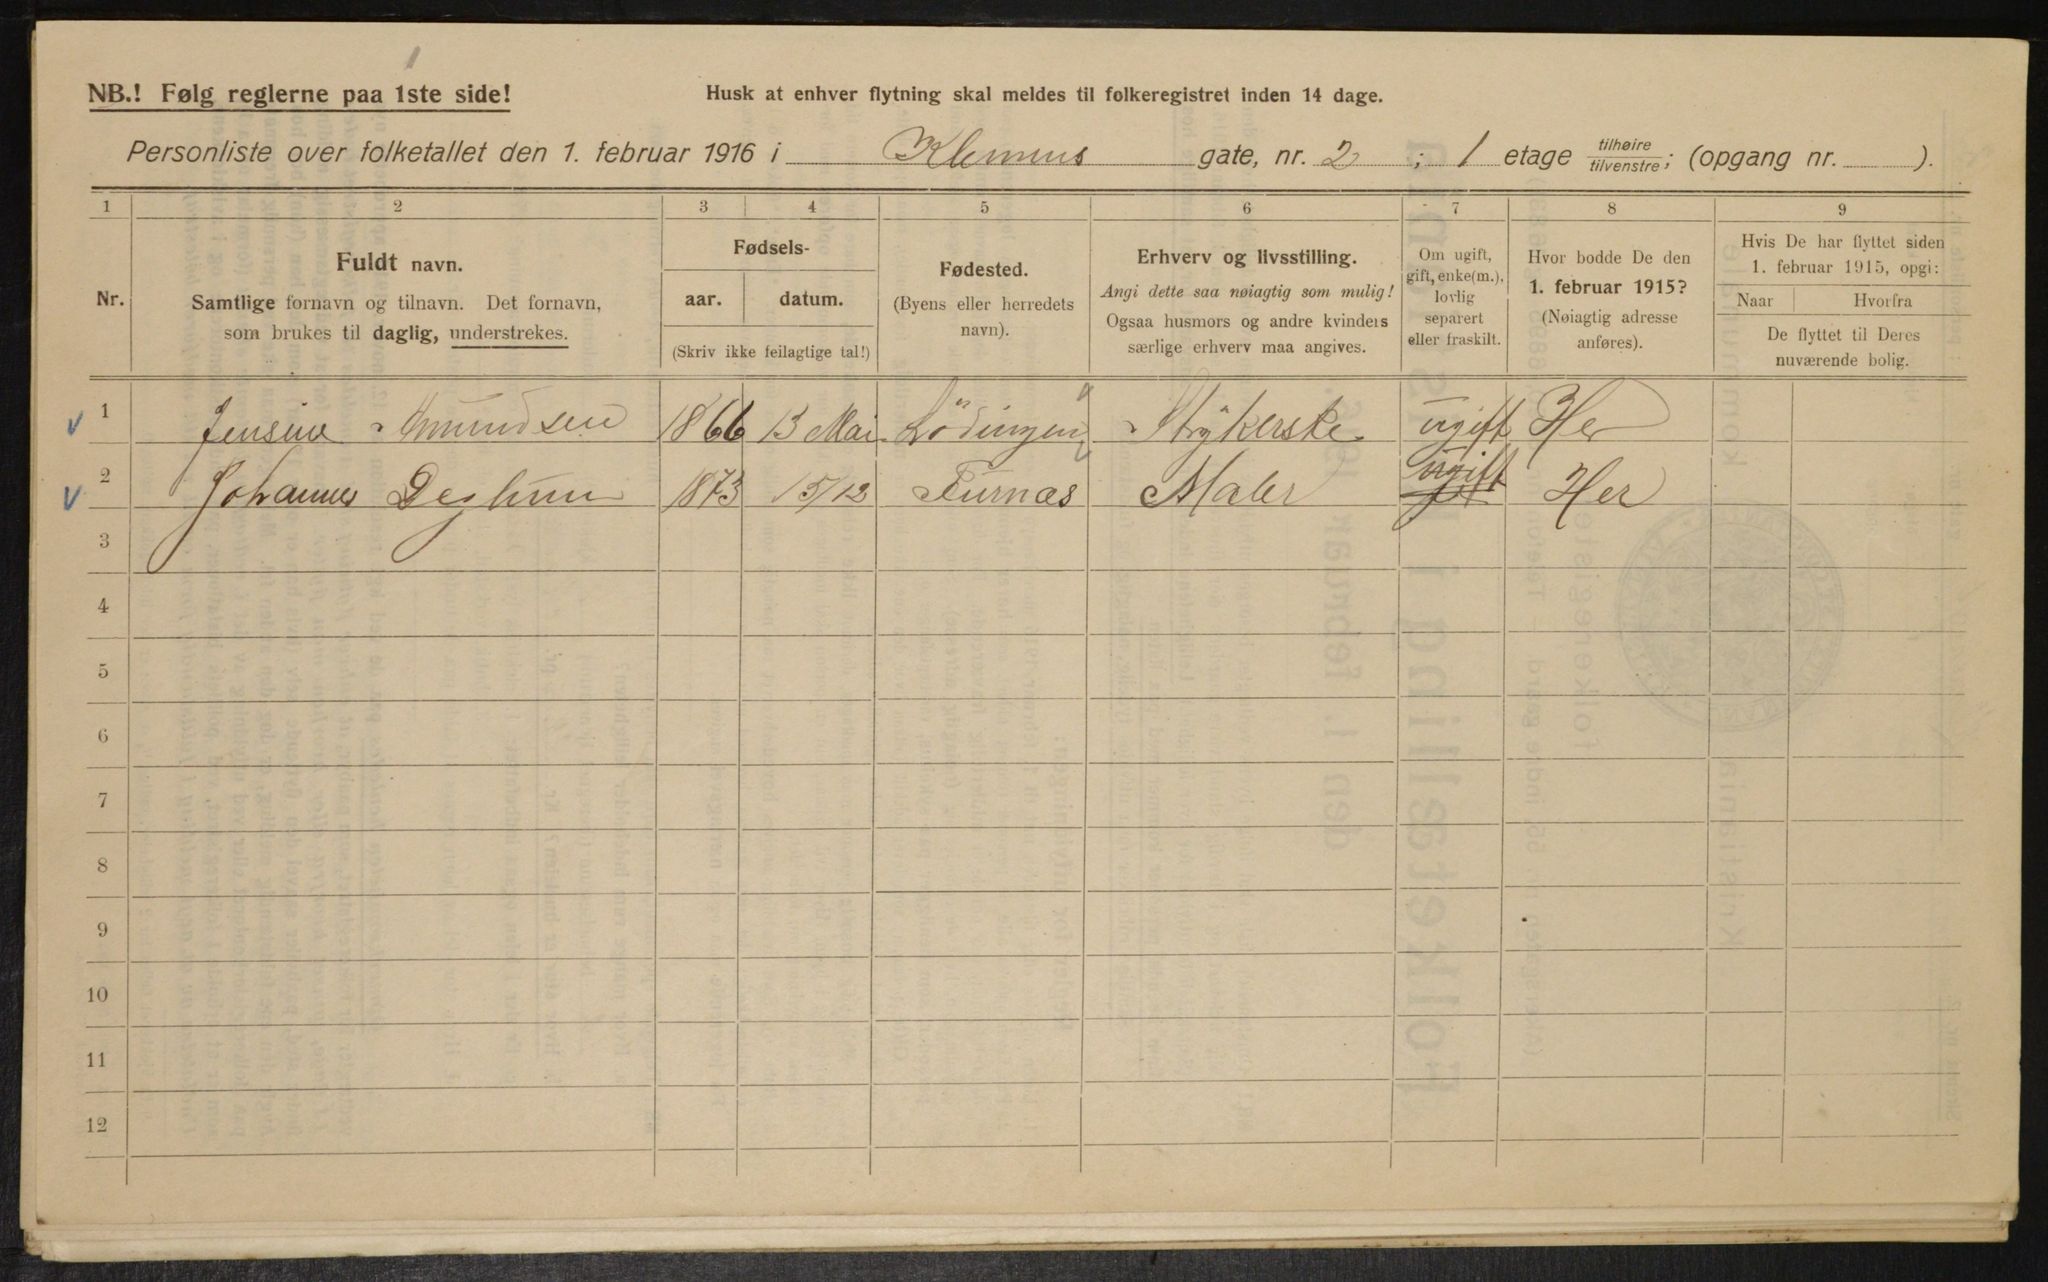 1
NB.! Følg reglerne paa 1ste side!
Husk at enhver flytning skal meldes til folkeregistret inden 14 dage.
Personliste over folketallet den 1. februar 1916 i Klemens gate, nr. 2 ; 1 etage tilhøire/tilvenstre; (opgang nr. ).
1 2 3 4 5 6 7 8 9
Nr.
Fuldt navn.
Samtlige fornavn og tilnavn. Det fornavn,
som brukes til daglig, understrekes.
Fødsels-
aar. datum.
(Skriv ikke feilagtige tal!)
Fødested.
(Byens eller herredets
navn).
Erhverv og livsstilling.
Angi dette saa nøiagtig som mulig!
Ogsaa husmors og andre kvinders
særlige erhverv maa angives.
Om ugift,
gift, enke(m.),
lovlig
separert
eller fraskilt.
Hvor bodde De den
1. februar 1915?
(Nøiagtig adresse
anføres).
Hvis De har flyttet siden
1. februar 1915, opgi:
Naar Hvorfra
De flyttet til Deres
nuværende bolig.
1 Jensine Amundsen 1866 13 Mai Lödingen Strykerske ugift Her
2 Johannes 1873 15/12 Furnæs Maler ugift Her
3
4
5
6
7
8
9
10
11
12